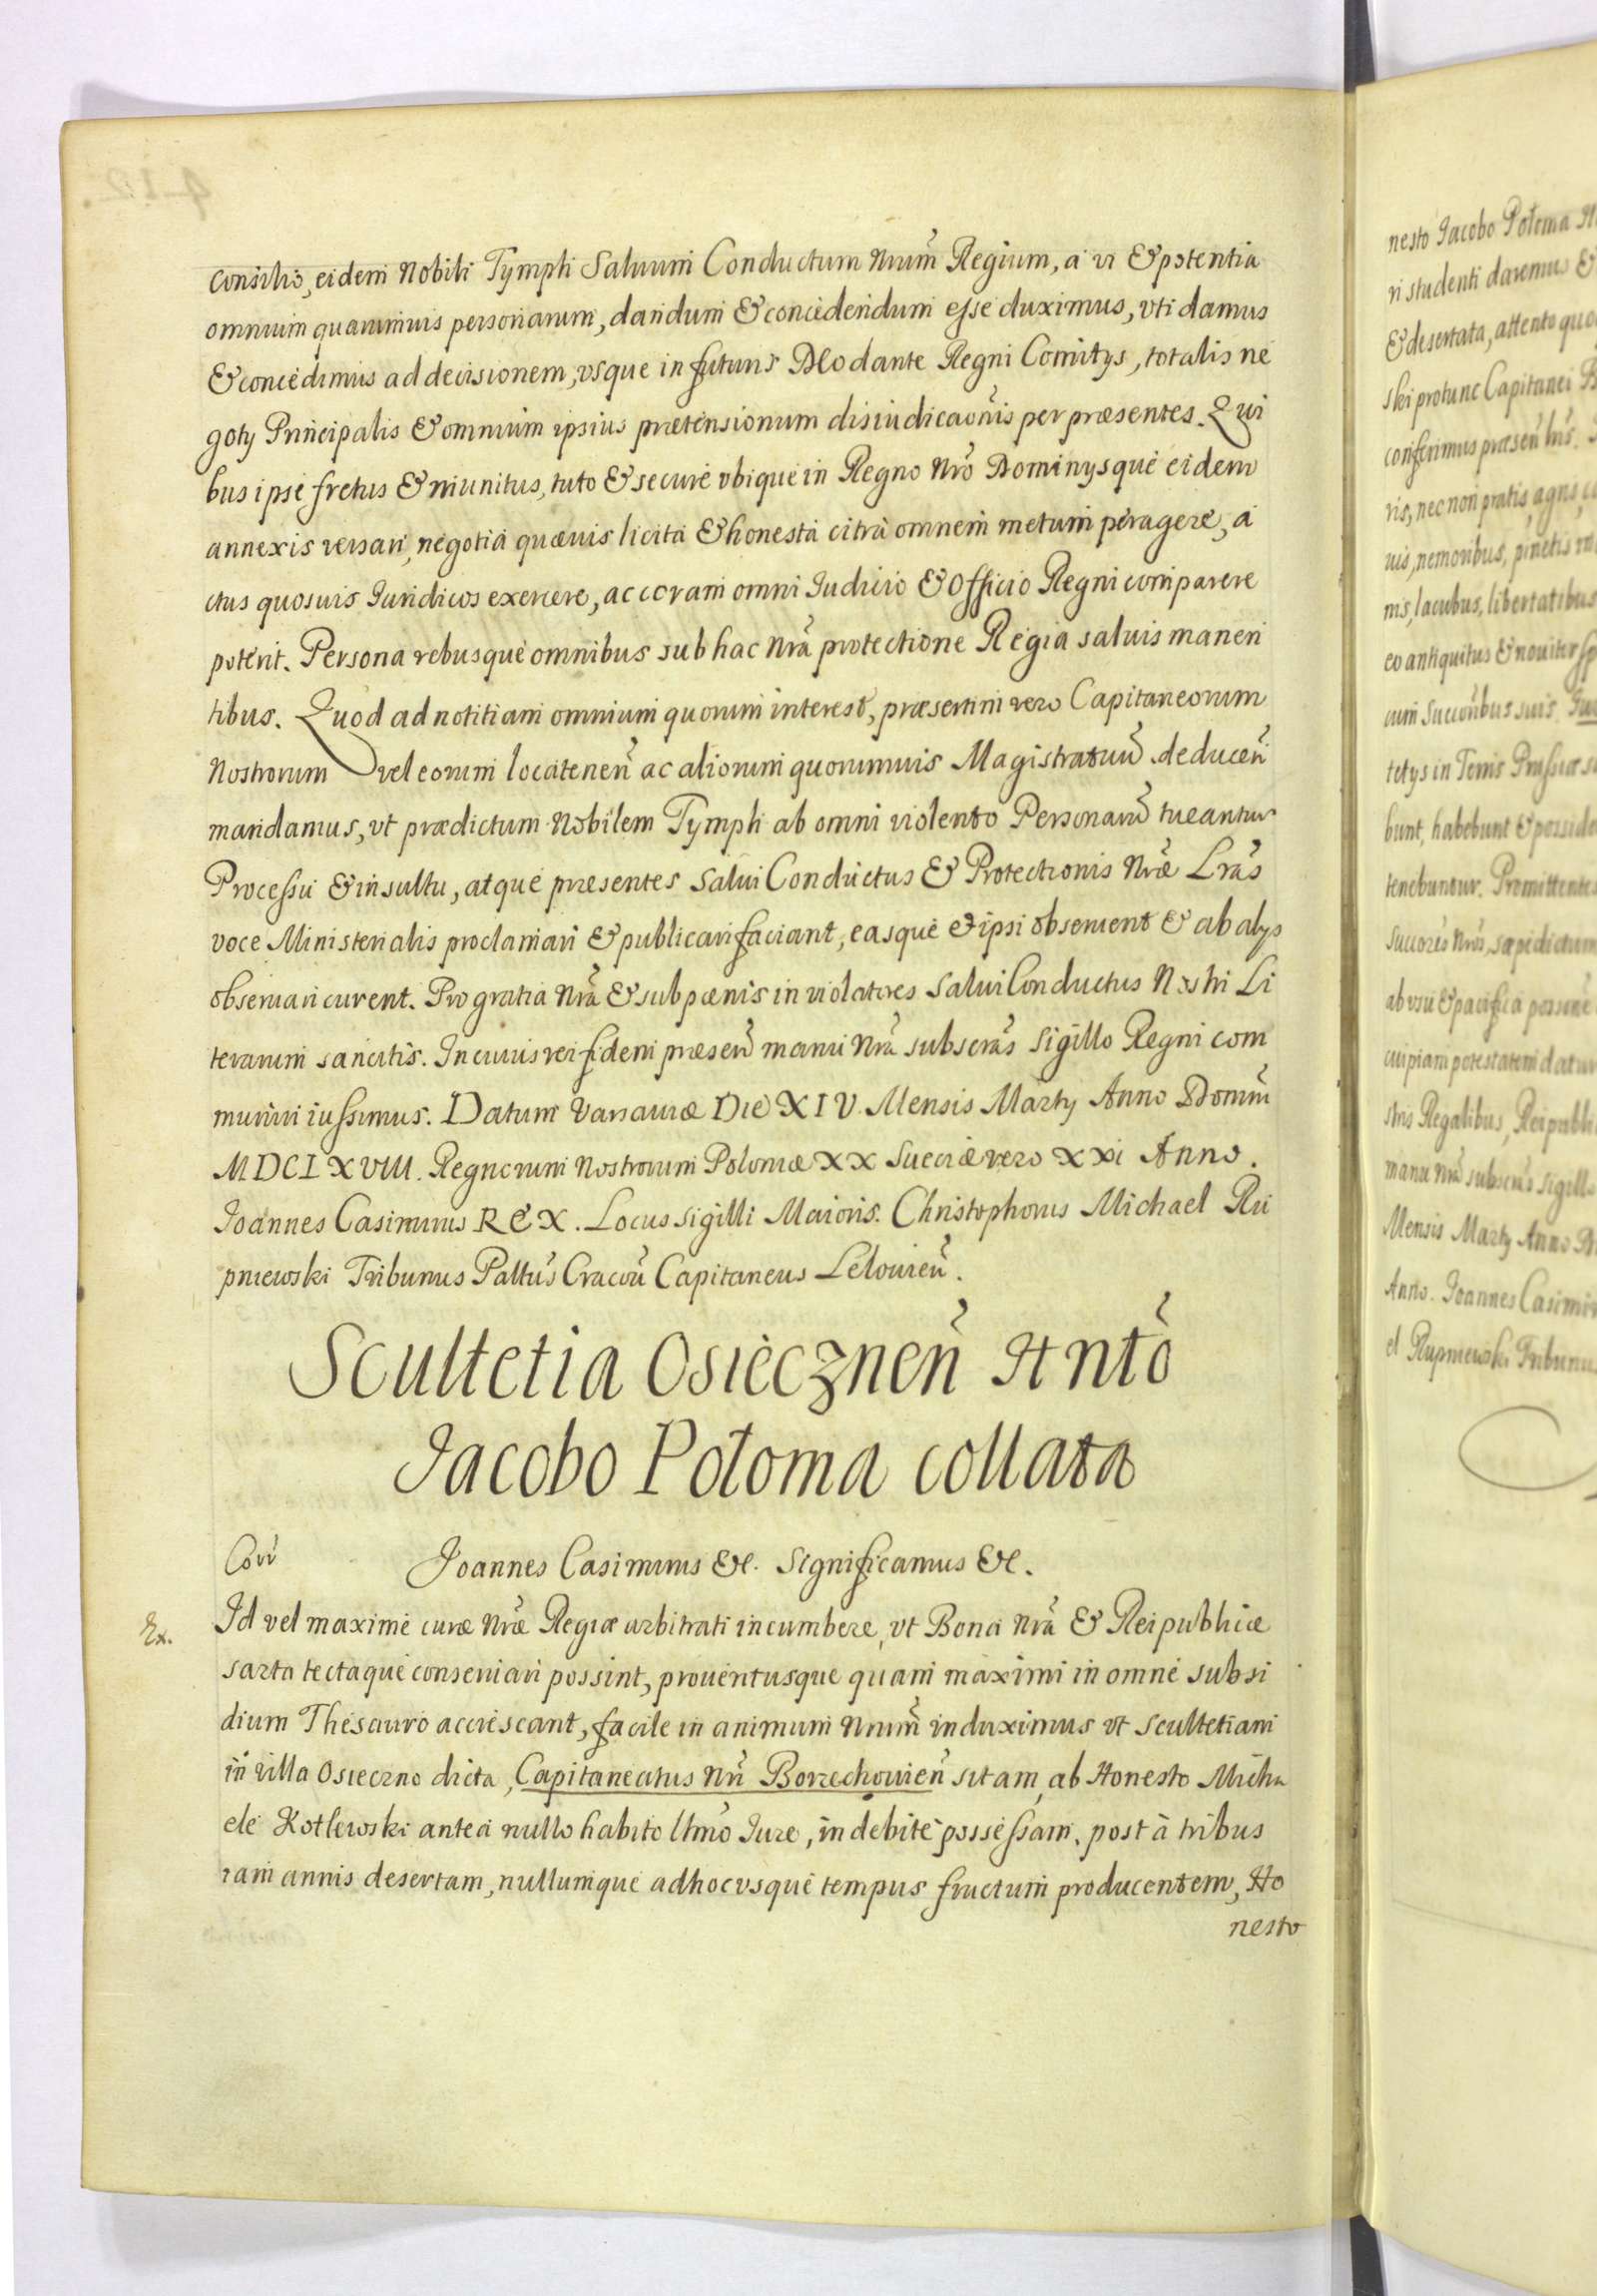 consilio, eidem Nobili Tymph Saluum Conductum Nrum̃ Regium, a vi & potentia
omnium quarumuis personarum, dandum & concedendum esse duximus, vti damus
& concedimus ad decisionem, vsque in futuris Deo dante Regni Comitys, totalis ne
goty Principalis & omnium ipsius prætensionum disiudicaõnis per præsentes. Qui
bus ipse fretus & munitus, tuto & secure vbique in Regno Nrõ Dominysque eidem
annexis versari, negotia quæuis licita & honesta citra omnem metum peragere, a
ctus quosuis Iuridicos exercere, ac coram omni Iudicio & Officio Regni comparere
poterit. Persona rebusque omnibus sub hac Nrã protectione Regia saluis manen
tibus. Quod ad notitiam omnium quorum interest, præsertim vero Capitaneorum
Nostrorum vel eorum locatenen̄ ac aliorum quorumuis Magistratuũ deducen̄
mandamus, vt prædictum Nobilem Tymph ab omni violento Personarũ tueantur
Processu & insultu, atque præsentes Salui Conductus & Protectionis Nræ̃ Lrãs
voce Ministerialis proclamari & publicari faciant, easque & ipsi obseruent & ab alys
obseruari curent. Pro gratia Nrã & sub pœnis in violatores Salui Conductus Nostri Li
terarum sancitis. In cuius rei fidem præsen̄ manu Nrã subscrãs Sigillo Regni com
muniri iussimus. Datum Varsauiæ Die XIV. Mensis Marty Anno Domin̄
MDCLXVIII. Regnorum Nostrorum Poloniæ XX Sueciæ vero XXi Anno.
Joannes Casimirus REX. Locus Sigilli Maioris. Christophorus Michael Ru
pniewski Tribunus Pallt̃us Cracou̅ Capitaneus Lelouien̄.
Scultetia Osiecznen̄ Hntõ
Jacobo Potoma collata
Corr̄ Joannes Casimirus &c. Significamus &c.
Ex. Id vel maxime curæ Nræ̃ Regiæ arbitrati incumbere, vt Bona Nrã & Reipublicæ
sarta tectaque conseruari possint, prouentusque quam maximi in omne subsi
dium Thesauro accrescant, facile in animum Nrum̃ induximus vt Scultetiam
in Villa Osieczno dicta, Capitaneatus Nri̅ Borzechouien̄ sitam, ab Honesto Micha
ele Kotlewski antea nullo habito ltmõ Iure, indebite possessam, post à tribus
iam annis desertam, nullumque adhocvsque tempus fructum producentem, Ho
nesto
nesto Jacobo Potoma
ri studenti daremus &
& desertata, attento quo
ski protunc Capitanei
conferimus præsen̄
ris, nec non pratis agris
uis, nemoribus, pinetis
nis, lacubus, libertatibus
eo antiquitus & nouiter
cum Succõribus suis
tetys in Terris Prussiæ
bunt, habebunt & posside
tenebuntur. Promittentes
Succores Nrõs, sæpedictum
ab vsu & pacifica
cuipiam potestatem
stris Regalibus, Reipubli
manu Nrã subscrãs Sigillo
Mensis Marty Anno
Anno. Joannes Casimir
el Rupniewski Tribunu